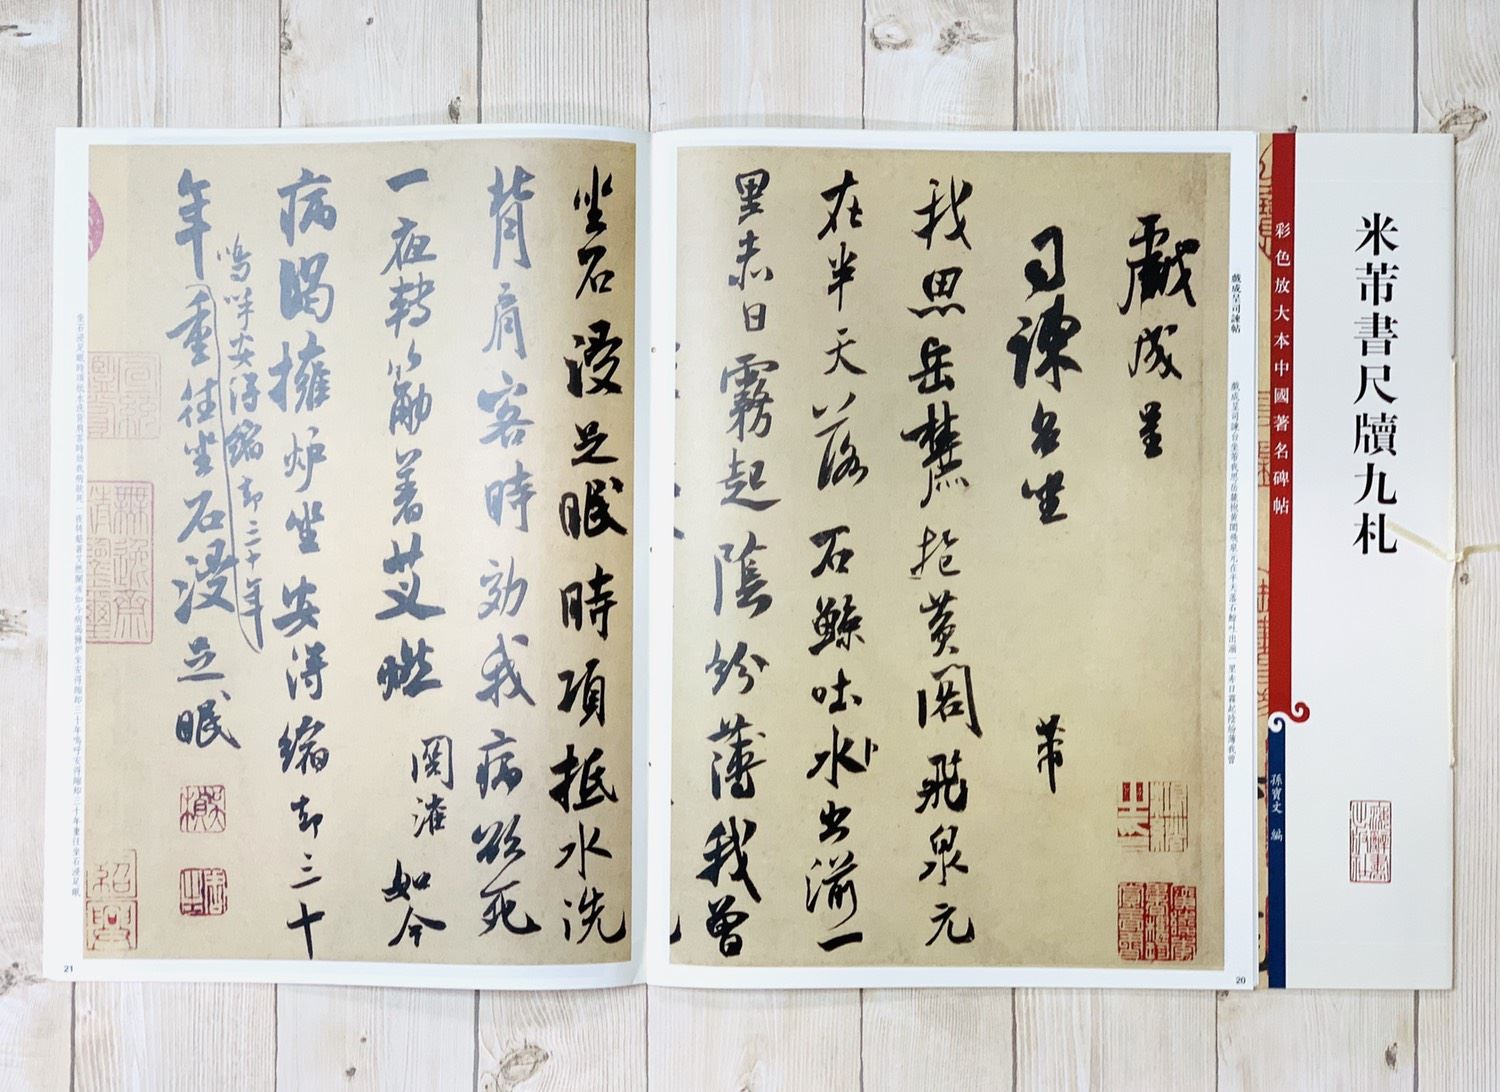 米芾書尺牘九札
彩色放大本中國著名碑帖
孫寶文 編
戲成呈司諫帖
戲成呈司諫台坐芾我思岳麓抱黄閣飛泉元在半天落石鯨吐出湍一里赤日霧起陰紛薄我曾
戲成呈
司諫台坐
芾
我思岳麓抱黄閣飛泉元
在半天落石鯨吐水出湍一
里赤日霧起陰紛薄我曾
20
坐石浸足眠時項抵水洗
背肩客時効我病欲死
一夜轉筋著艾燃關灌如今
病渴擁炉坐安得縮却三十
年嗚呼安得縮却三十年
重往坐石浸足眠
紹興
坐石浸足眠時項抵水洗背肩客時効我病欲死一夜轉筋著艾燃關灌如今病渴擁炉坐安得縮却三十年嗚呼安得縮却三十年重往坐石浸足眠
21